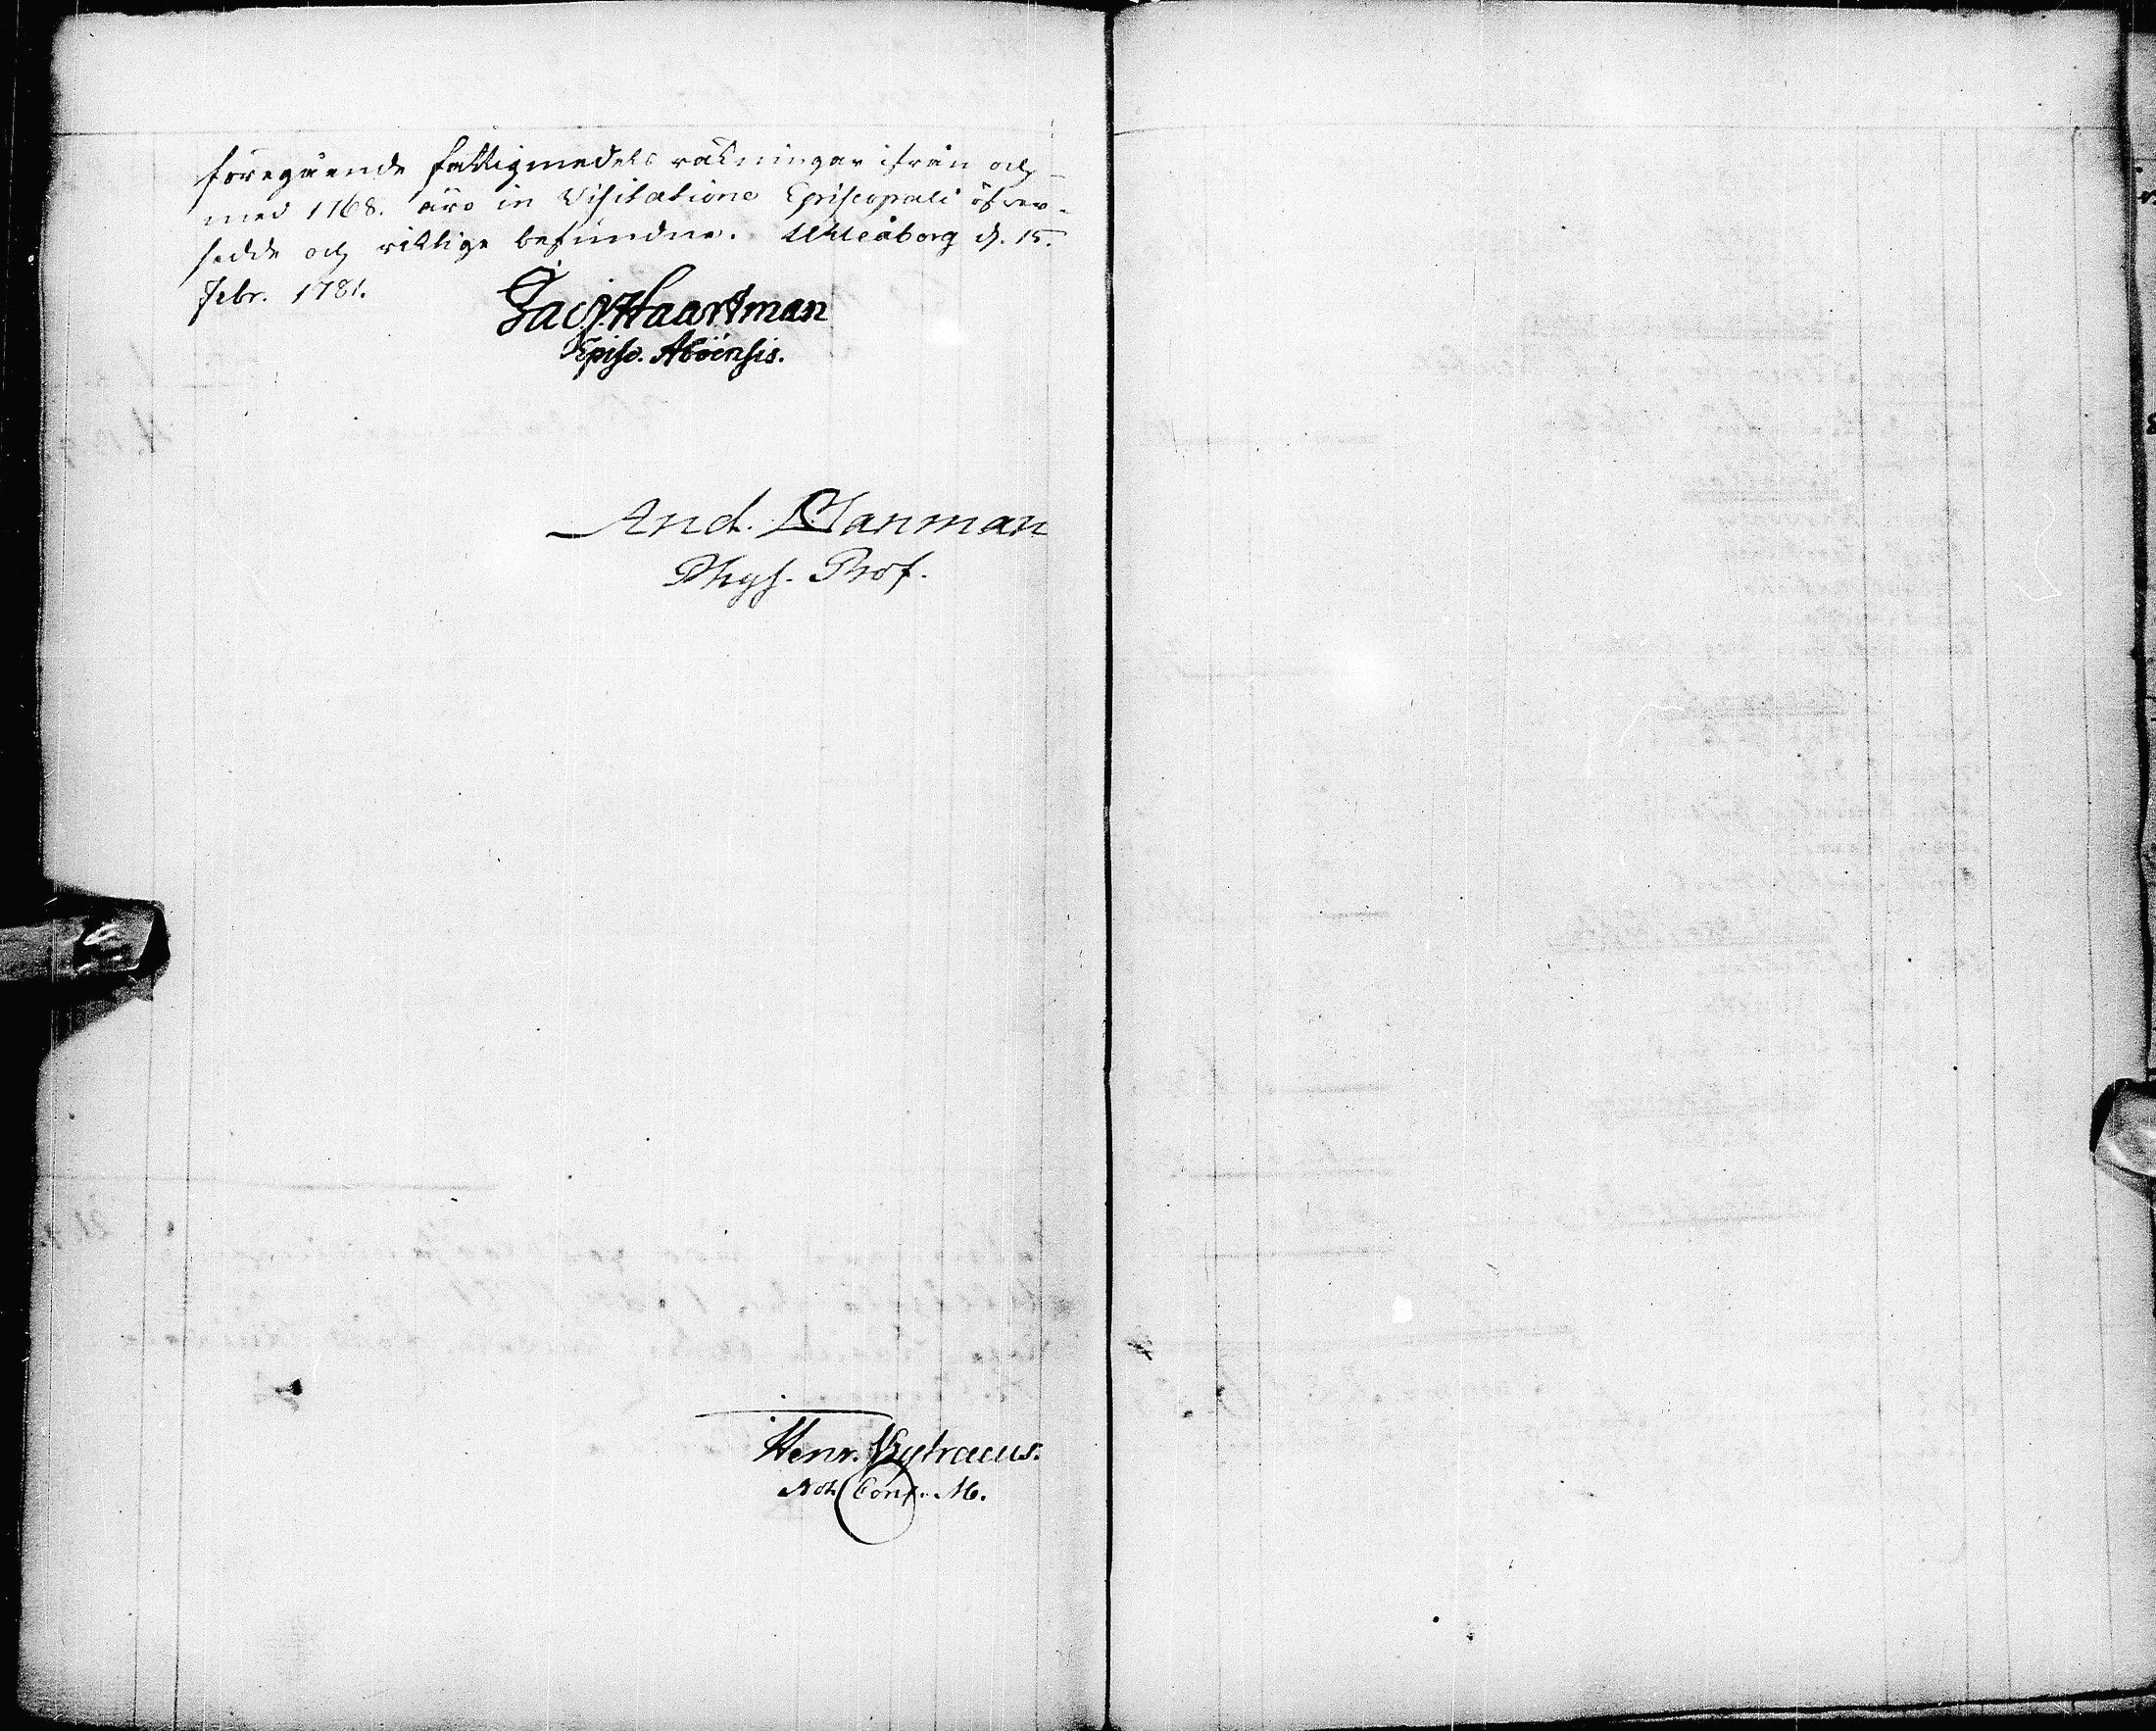 föregående fattigmedels räkningar ifrån och
med 1768. äro in Visitatione Episcopali öfver-
sedde och riktige befundne. Uhleåborg d. 15.
Febr. 1781.
Jac. Haartman
Episc. Aboënsis.
And. Planman
Phys. Prof.
Henr.
Not. Cons. M.